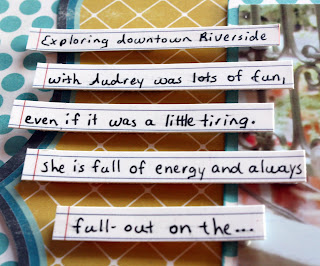 Exploring downtown Riverside
with Audrey was lots of fun,
even if it was a little tiring.
She is full of energy and always
full-out on the...